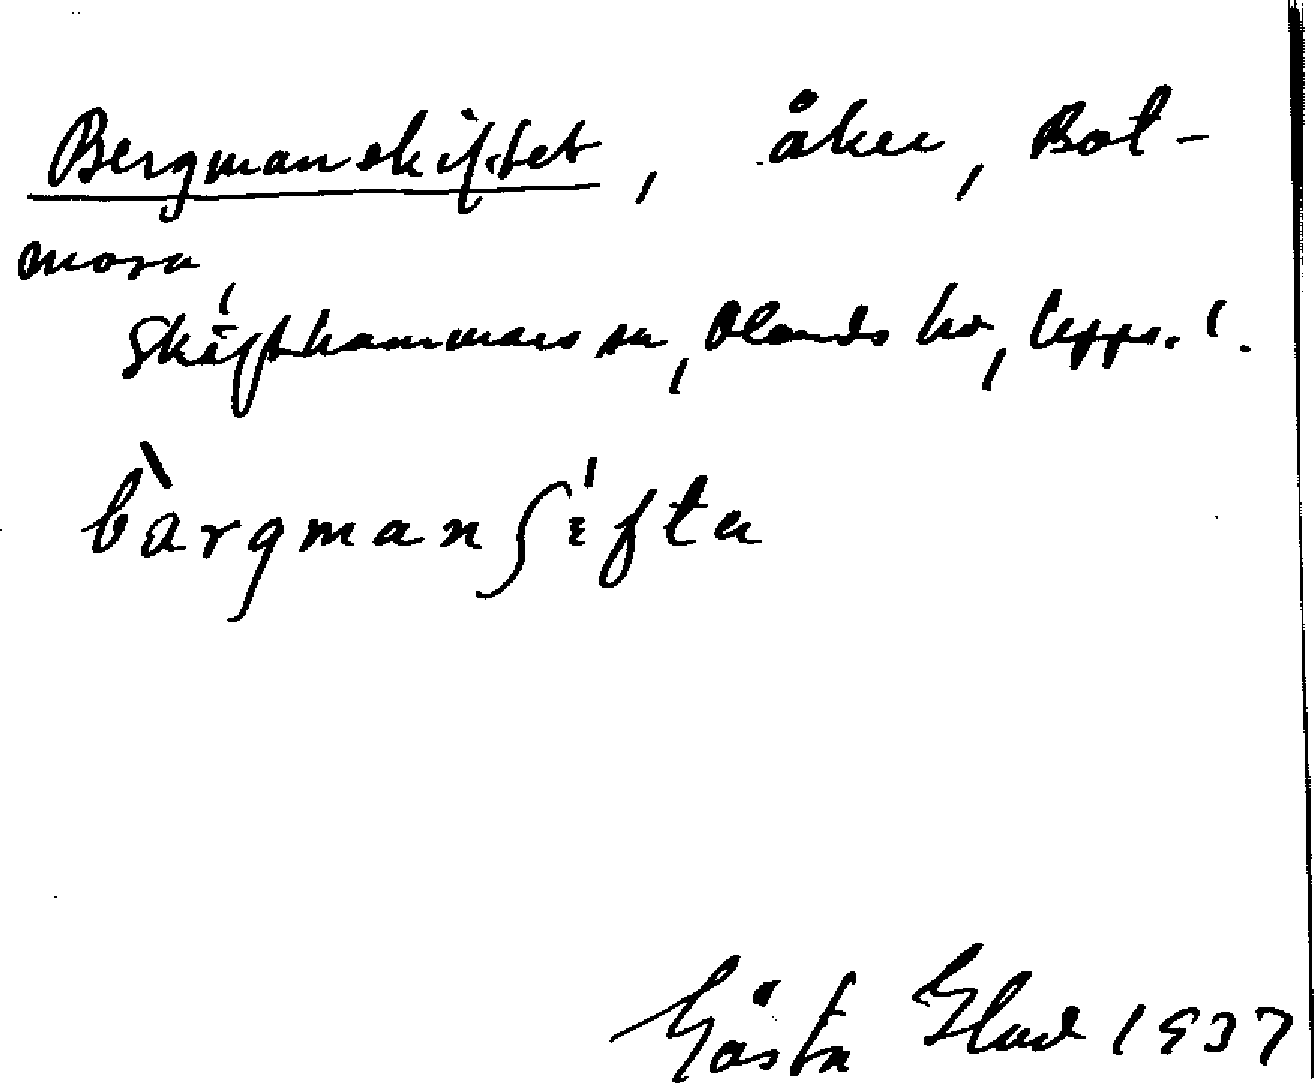 Bergmanskiftet, åker, Bol-
mora
Skäfthammars sn, Olands hd, Upps. l.
bàrgmanʃìfta
Gösta Glad 1937